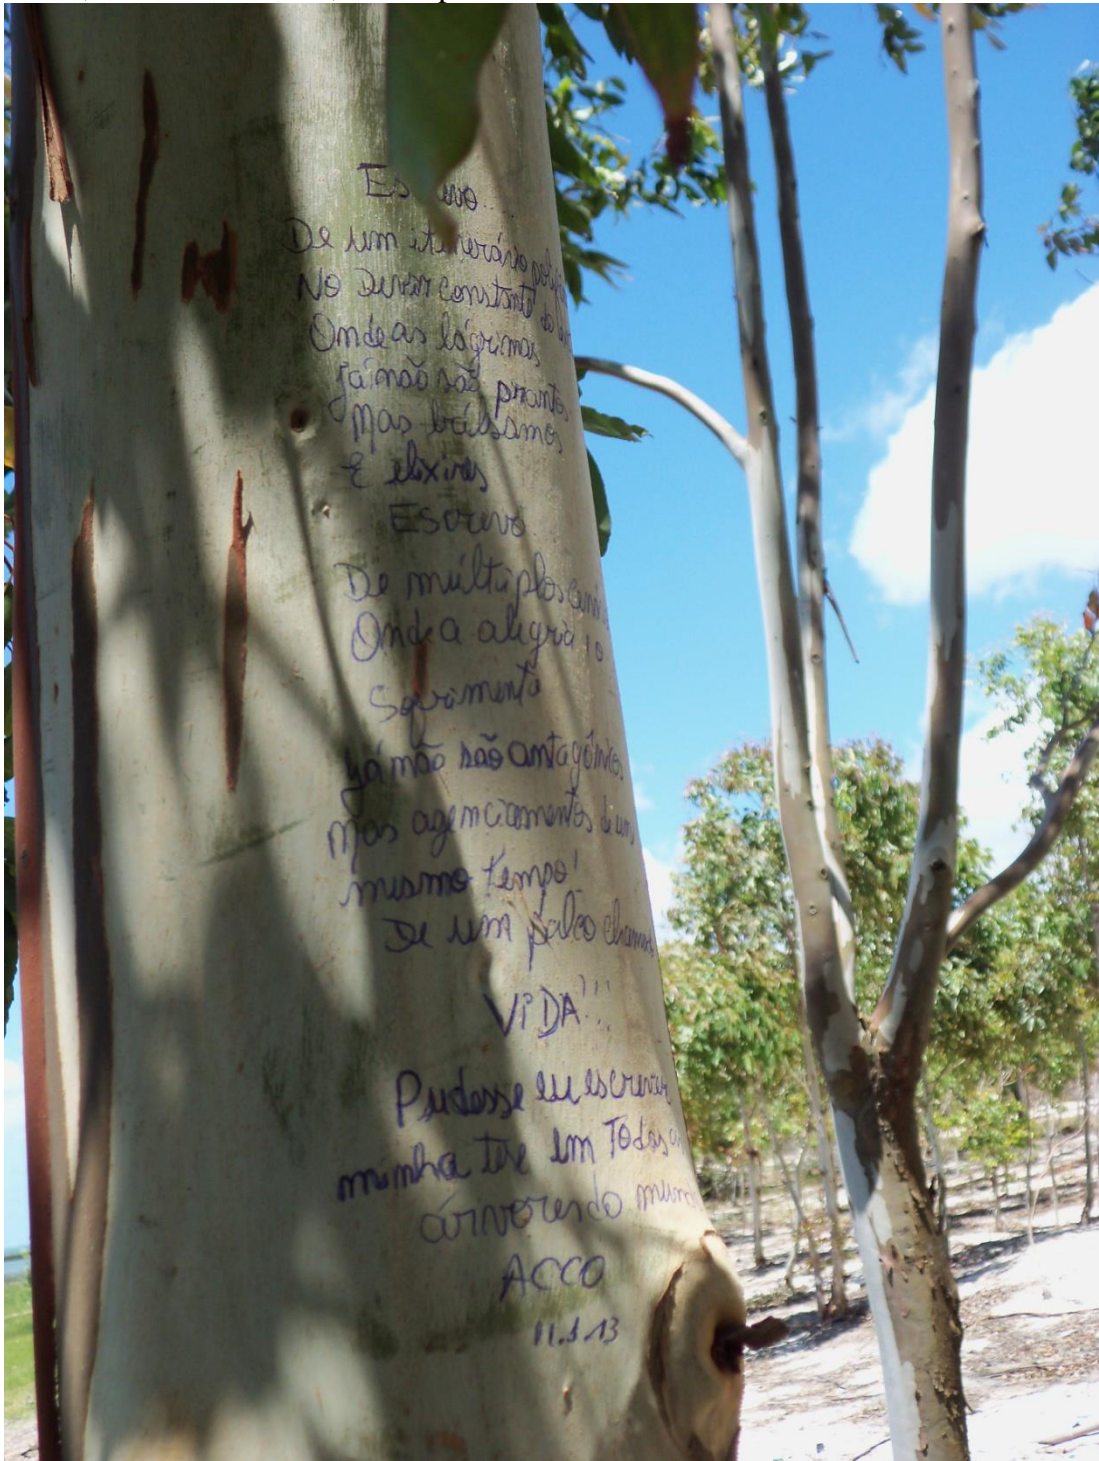 Escrevo...
De um itinerário
No Devir constante do
Onde as lágrimas
Já não são prantos
Mas bálsamos
E elixires
Escrevo
De múltiplos
Onde a alegria e o
Sofrimento
Já não são antagônicos
Mas agenciamentos de um
mesmo tempo!
De um palco chamado
ViDA!!!
Pudesse eu escrever
minha tese em Todas as
árvores do mundo
ACCO